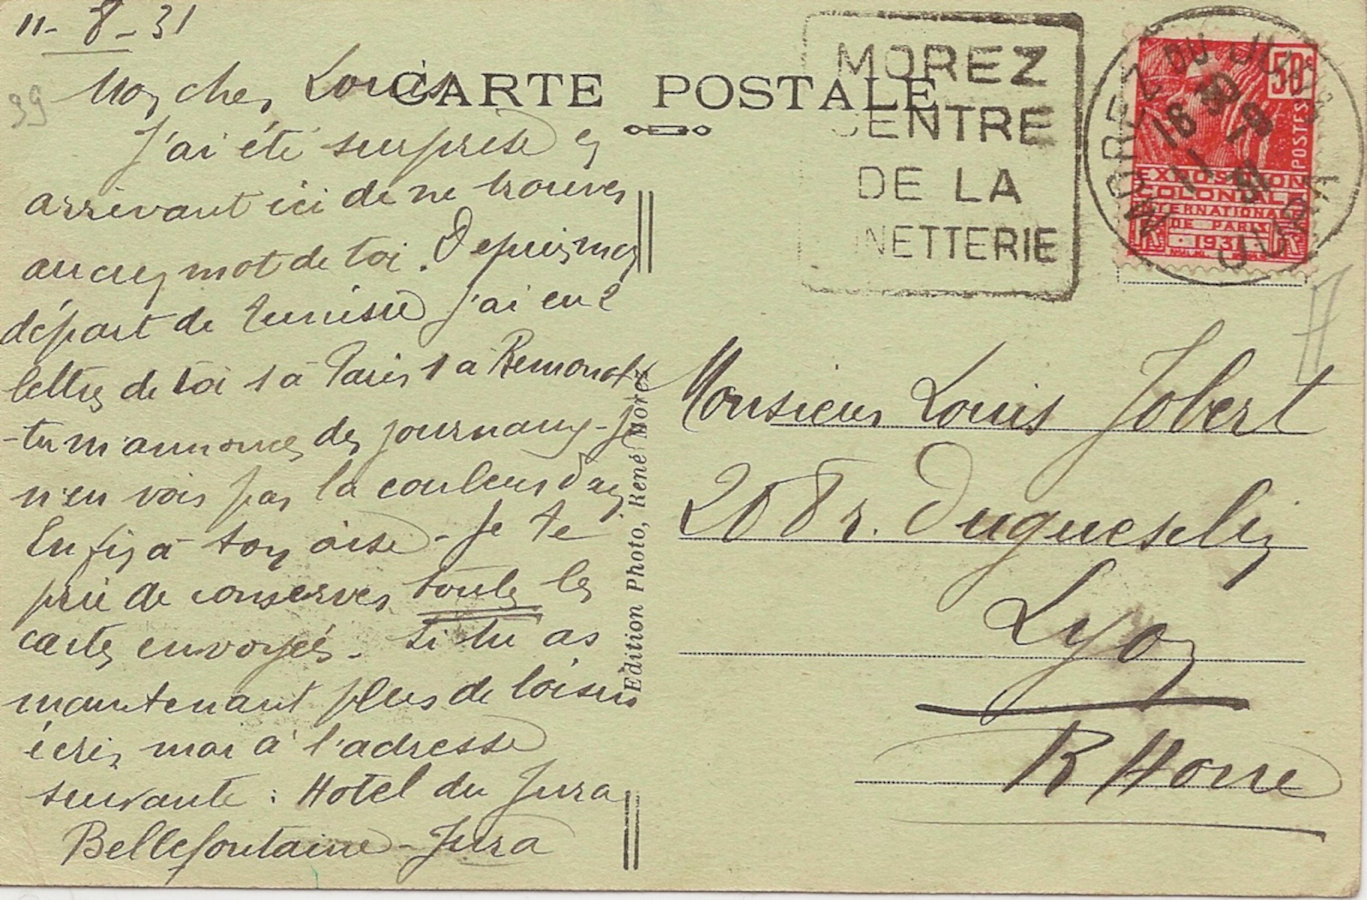 11-8-31
39
Mon cher Louis
CARTE POSTALE
J'ai été surprise en
arrivant ici de ne trouver
aucun mot de toi. Depuis mon
départ de Tunisie j'ai eu 2
lettres de toi 1 à Paris 1 à
- tu m'annonces des journaux - Je
n'en vois pas la couleur
Enfin à ton aise - Je te
prie de conserver toutes les
cartes envoyées - Si tu as
maintenant plus de loisirs
écris moi à l'adresse
suivante : Hotel du Jura
Bellefontaine - Jura
Edition Photo, René Morez
MOREZ
CENTRE
DE LA
NETTERIE
MOREZ DU JURA
JURA
18
11 - 8
31
50c
POSTES
EXPOSITION
COLONIALE
INTERNATIONALE
DE PARIS
1931
RF
Monsieur Louis Jobert
208 r. Duguesclin
Lyon
RHone